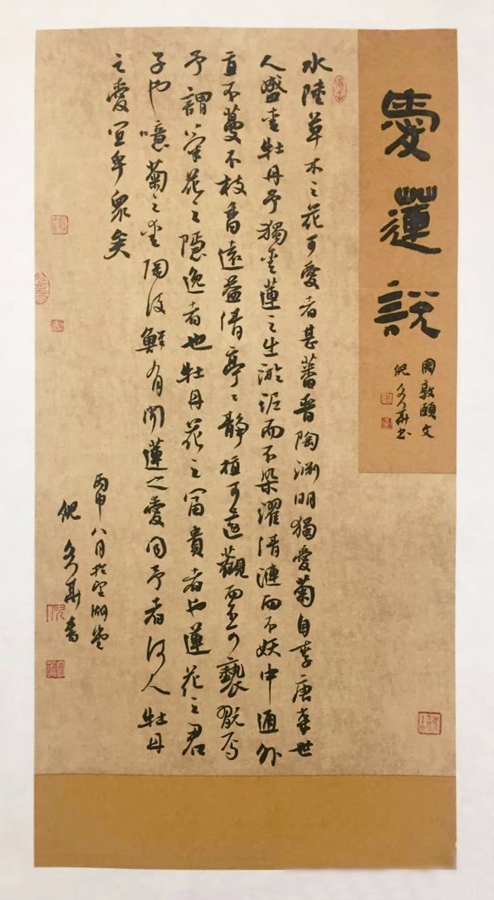 愛蓮說
周敦頤文
倪 書
水陸草木之花可愛者甚蕃晉陶淵明獨愛菊自李唐來世
人盛愛牡丹予獨愛蓮之出淤泥而不染濯清漣而不妖中通外
直不蔓不枝香遠益清亭亭靜植可遠觀而不可褻翫焉
予謂菊花之隱逸者也牡丹花之富貴者也蓮花之君
子也噫菊之愛陶後鮮有聞蓮之愛同予者何人牡丹
之愛宜乎眾矣
丙申八月於 湖堂
倪 書